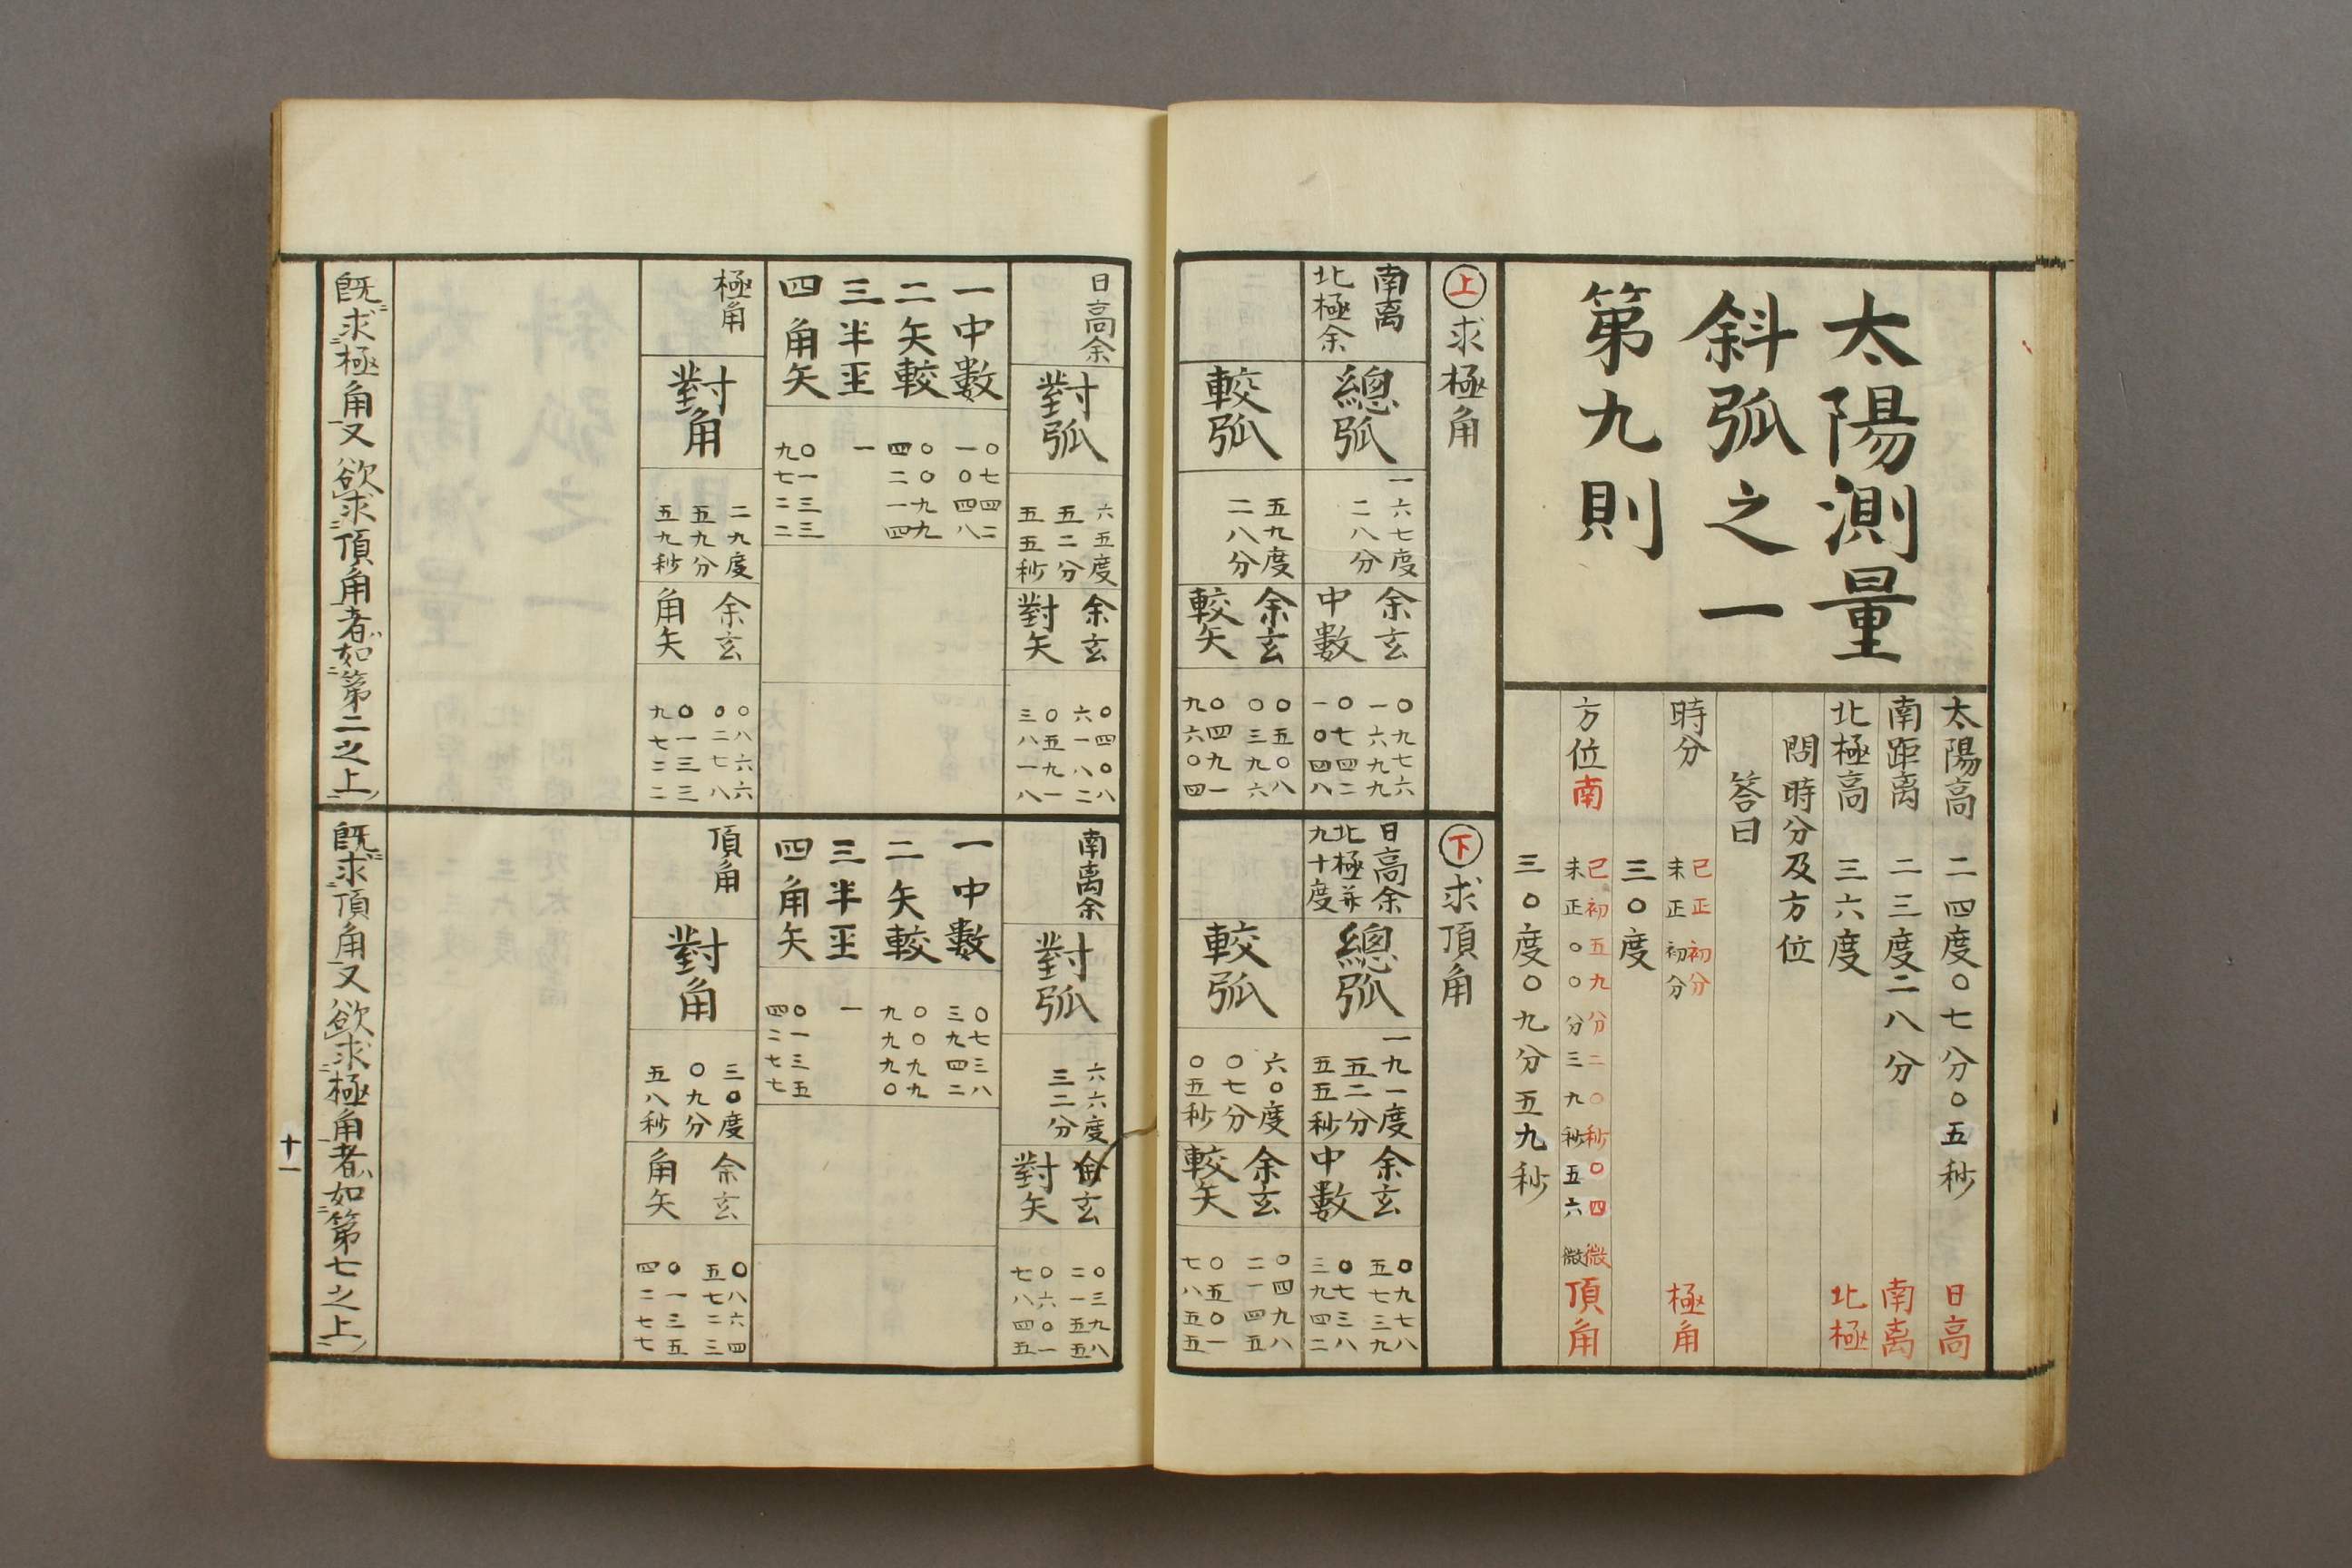 太陽測量
斜弧之一
第九則
太陽高 二四度〇七分〇五秒 日高
南距离 二三度二八分 南离
北極高 三六度 北極
問時分及方位
答曰
時分 巳正初分 極角
未正初分
三〇度
方位南 巳初五九分二〇秒〇四微 頂角
未正〇〇分三九秒五六微
三〇度〇九分五九秒
上 求極角
南离
北極余
總弧
一六七度
二八分
余玄
中數
〇九七六
一六九九
〇七四二
一〇四八
較弧
五九度
二八分
余玄
較矢
〇五〇八
〇三九六
〇四九一
九六〇四
下 求頂角
日高余
北極并
九十度
總弧
一九一度
五二分
五五秒
余玄
中數
〇九七八
五七三九
〇七三八
三九四二
較弧
六〇度
〇七分
〇五秒
余玄
較矢
〇四九八
二一四五
〇五〇一
七八五五
日高余
對弧
六五度
五二分
五五秒
余玄
對矢
〇四〇八
六一八二
〇五九一
三八一八
一中數
〇七四二
一〇四八
二矢較
〇〇九九
四二一四
三半王
一
四角矢
〇一三三
九七二二
極角
對角
二九度
五九分
五九秒
余玄
角矢
〇八六六
〇二七八
〇一三三
九七二二
既求極角又欲求頂角者如第二之上
南离余
對弧
六六度
三二分
余玄
對矢
〇三九八
二一五五
〇六〇一
七八四五
一中數
〇七三八
三九四二
二矢較
〇〇九九
九九九〇
三半王
一
四角矢
〇一三五
四二七七
頂角
對角
三〇度
〇九分
五八秒
余玄
角矢
〇八六四
五七二三
〇一三五
四二七七
既求頂角又欲求極角者如第七之上
十一